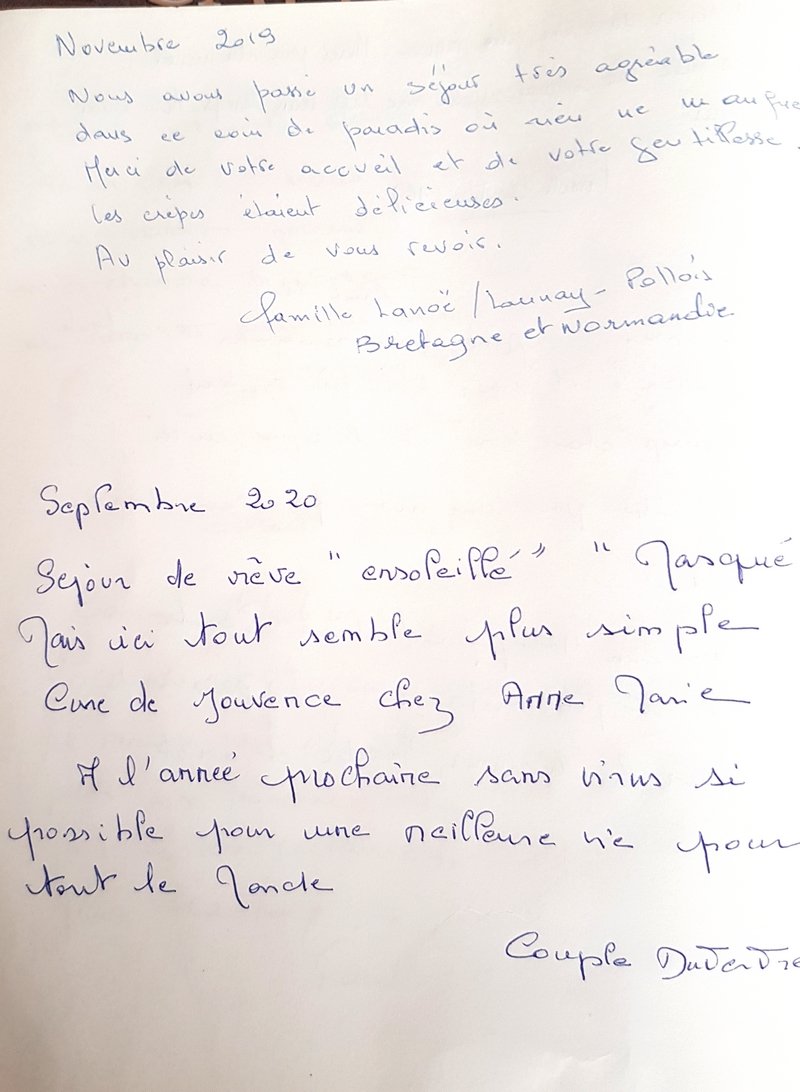 Novembre 2019
Nous avons passé un séjour très agréable
dans ce coin de paradis où rien ne manque
Merci de votre accueil et de votre gentillesse.
Les crêpes étaient délicieuses.
Au plaisir de vous revoir.
famille Lanoë / Launay - Pollois
Bretagne et Normandie
Septembre 2020
Sejour de rêve " ensoleillé " " Masqué
Mais ici tout semble plus simple
Cure de Jouvence chez Anne Marie
A l'anneé prochaine sans virus si
possible pour une meilleure vie pour
tout le Monde
Couple Dutertre